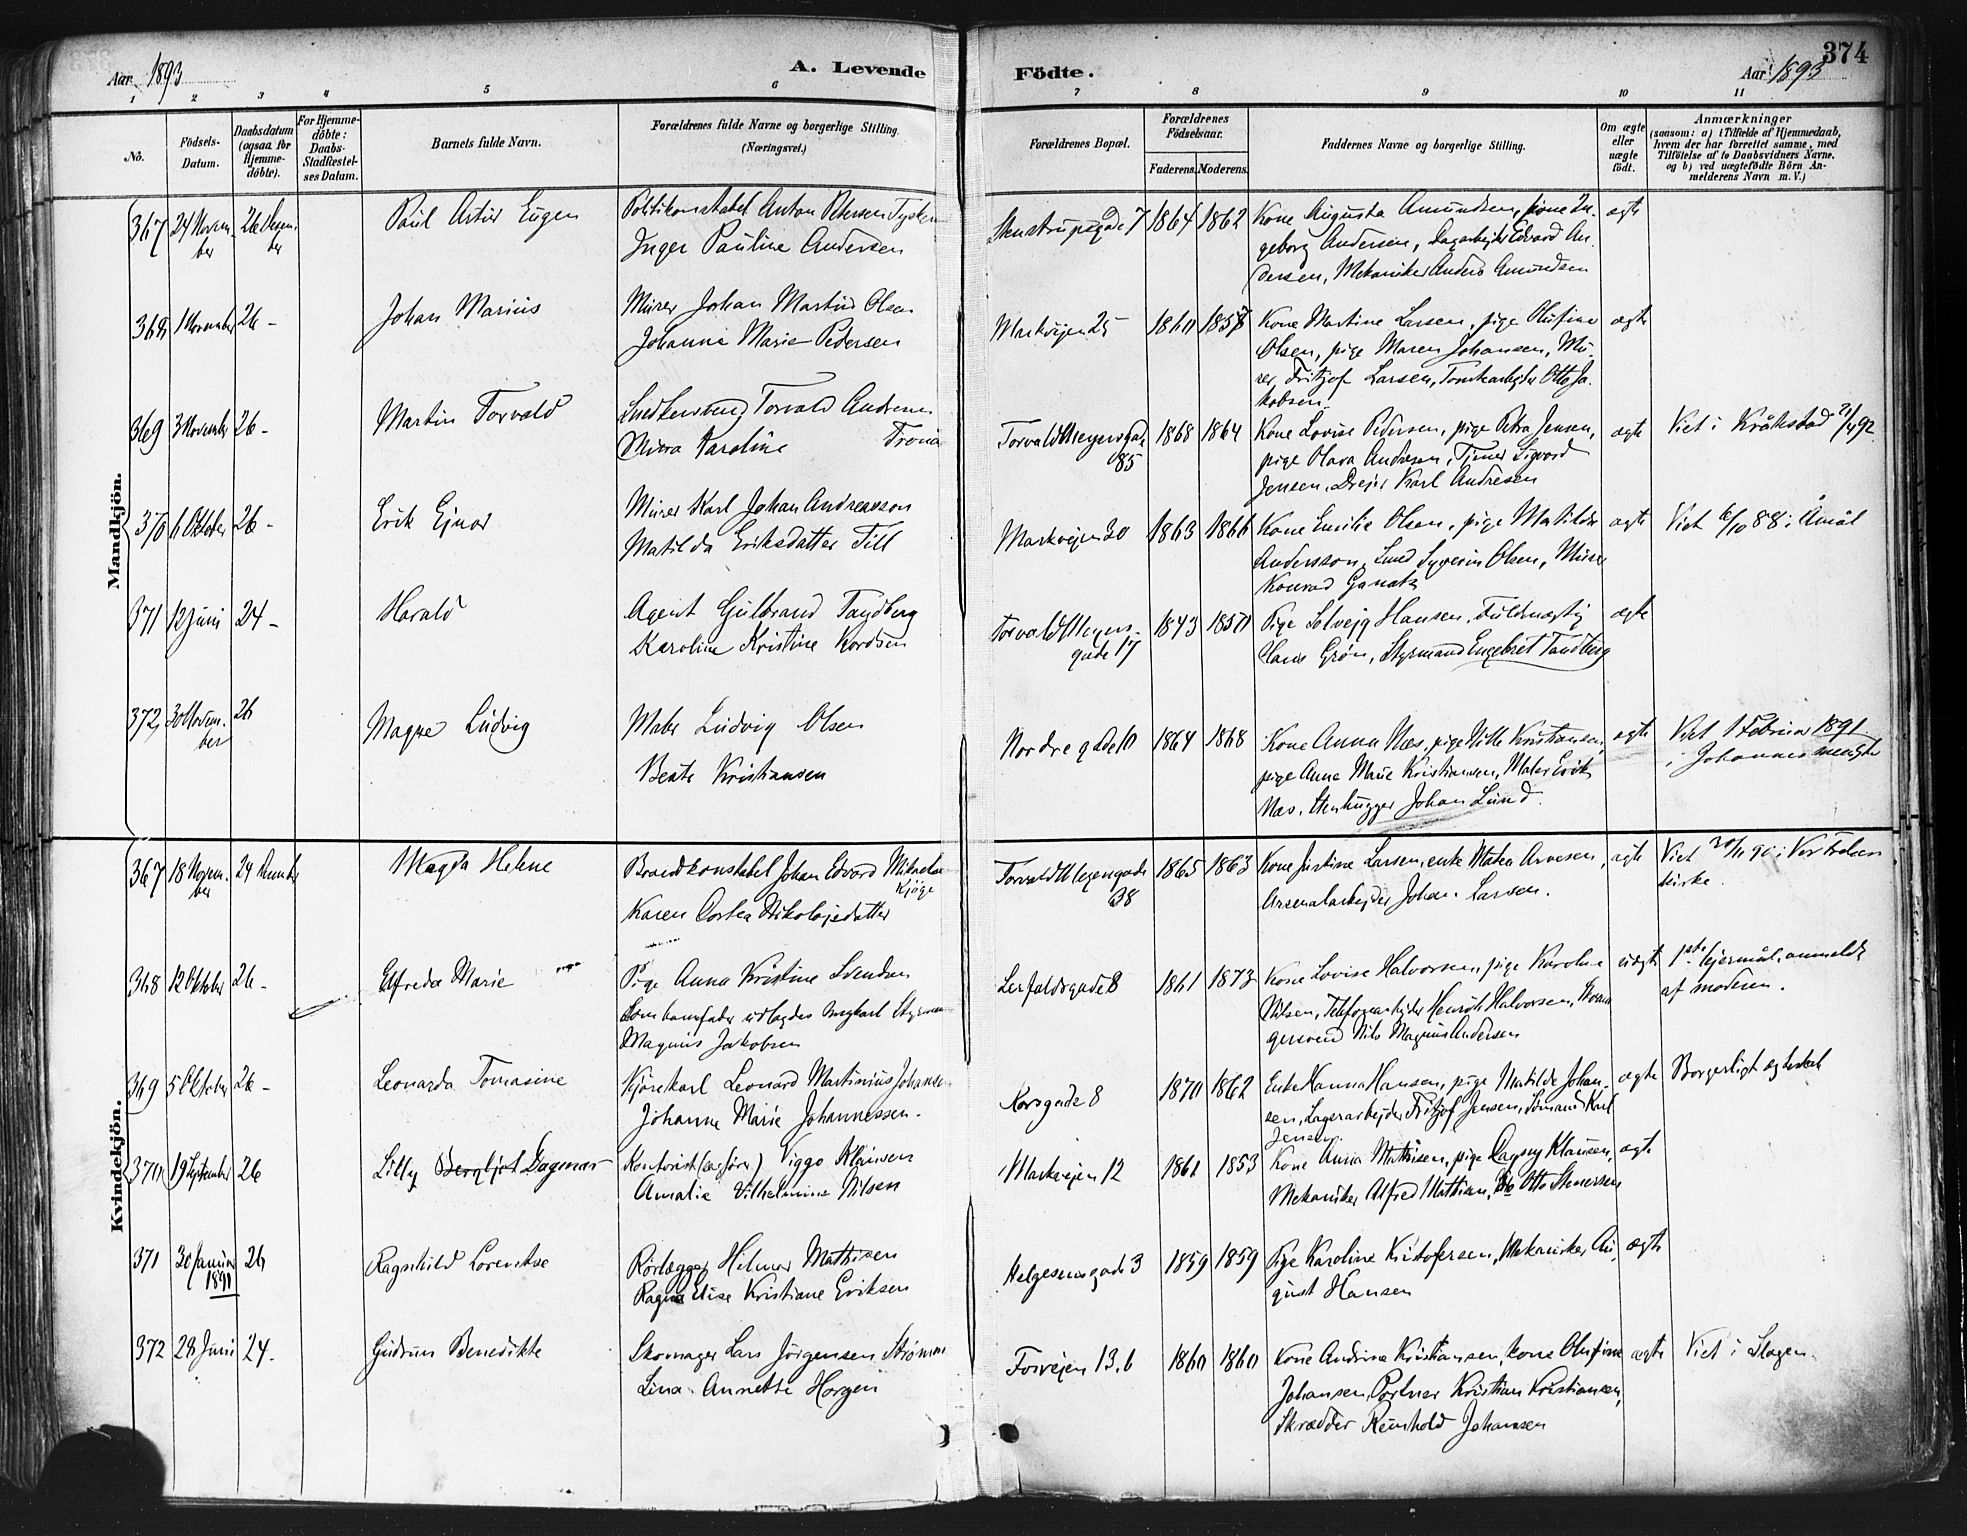 374
Aar 1893 A. Levende Födte. Aar 1893
1 2 3 4 5 6 7 8 9 10 11
No.
Födsels-Datum.
Daabsdatum (ogsaa for Hjemme-döbte).
For Hjemme-döbte: Daabs-Stadfæstel-ses Datum.
Barnets fulde Navn.
Forældrenes fulde Navne og borgerlige Stilling. (Næringsvei.)
Forældrenes Bopæl.
Forældrenes Födselsaar. Faderens. Moderens.
Faddernes Navne og borgerlige Stilling.
Om ægte eller uægte födt.
Anmærkninger (saasom: a) i Tilfælde af Hjemmedaab, hvem der har forrettet samme, med Tilföielse af to Daabsvidners Navne, og b) ved uægtefödte Börn Anmelderens Navn m. V.)
Mandkjön.
367 24 Novem-ber 26 Desem-ber Paul Artur Eugen
Politikonstabel Anton Petersen
Inger Pauline Andersen
Stenstrupsgade 7 1864 1862
Kone Augusta Amundsen, kone In-
geborg Andersen, Dagarbejder Edvard An-
dersen, Mekaniker Anders Amundsen
ægte
368 1 November 26 - Johan Marius
Murer Johan Martin Olsen
Johanne Marie Pedersen
Markvejen 25 1860 1857
Kone Martine Larsen, pige Olufine
Olsen, pige Maren Johansen, Mu-
rer Fritjof Larsen, Tomtearbejder Otto Ja-
kobsen.
ægte
369 3 November 26 - Martin Torvald
Snedkersvend Torvald Andresen
Karoline
Torvald Meyersgade 85 1868 1864
Kone Lovise Pedersen, pige Petra Jensen,
pige Olava Andresen, Sigvard
Jensen, Drejer Karl Andresen
ægte Viet i Kråkstad 92
370 6 Oktober 26 - Erik Ejnar
Murer Karl Johan Andreasson
Matilda Eriksdatter Till
Markvejen 30 1863 1866
Kone Emilie Olsen, pige Matilde
Andersson, Smed Syverin Olsen, Murer
Konrad
ægte Viet 6/10 88 i Åmål
371 12 Juni 24 - Harald
Agent Gulbrand Tandberg
Karoline Kristine Nordsen
Torvald Meyers-
gade 17 1843 1850
Pige Solvejg Hansen, Fuldmægtig
Hans Grøn, Styrmand Engebret Tandberg
ægte
372 30 Novem-ber 26 Magne Ludvig
Maler Ludvig Olsen
Beate Kristiansen
Nordregade 10 1864 1868
Kone Anna Næs, pige Kristiansen,
pige Anna Marie Kristiansen, Maler Erik
Næs, Stenhugger Johan Lund.
ægte Viet 1 Februar 1891
i Johannes menighet
Kvindekjön.
367 18 Novem-ber 24 Desember Magda Helene
Brandkonstabel Johan Edvard Mikaelsen
Kjøge
Karen Dortea Nikolajsdatter
Torvald Meyersgade 38 1865 1863
Kone Justine Larsen, enke Matea Arnesen,
Arsenalarbejder Johan Larsen.
ægte Viet 90 i Vor Frelsers
kirke.
368 12 Oktober 26 - Elfreda Marie
Pige Anna Kristine Svendsen
Som barnefader udlagdes ungkarl Styrmand
Magnus Jakobsen
Lerfaldsgade 8 1861 1873
Kone Lovise Halvorsen, pige Karoline
Nilsen, Telefonarbejder Henrik Halvorsen,
gersvend Nils Magnus Andersen
uægte 1ste lejermål, anmeldt
af moderen.
369 5 Oktober 26 - Leonarda Tomasine
Kjørekarl Leonard Martinius Johansen
Johanne Marie Johannessen.
Korsgade 8 1870 1862
Enke Hanna Hansen, pige Matilde Johan-
sen, Lagerarbejder Fritjof Jensen, Sømand Karl
Jensen
ægte Borgerligt ægteskab
370 19 September 26 Lilly Bergljot Dagmar
Kontorist Viggo Klausen
Amalie Vilhelmine Nilsen
Markvejen 12 1861 1853
Kone Anna Mathisen, pige Dagny Klausen,
Mekaniker Alfred Mathisen, do Otto Stenersen
ægte
371 30 Januar 1891 26 Ragnhild Lorentse
Rörlægger Hilmar Mathisen
Ragna Elise Kristiane Eriksen
Helgesensgade 3 1859 1859
Pige Karoline Kristofersen, Mekaniker Au-
gust Hansen
ægte
372 28 Juni 24. Gudrun Benedikte
Skomager Lars Jörgensen
Lina Annette Horgen
Fosvejen 13.b 1860 1860
Kone Andrine Kristiansen, kone Olufine
Johansen, Portner Kristian Kristiansen,
Skrædder Reinhold Johansen
ægte Viet i Slagen.